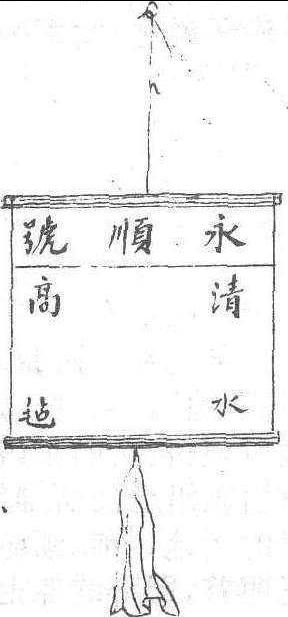 永順號
清水
高毡